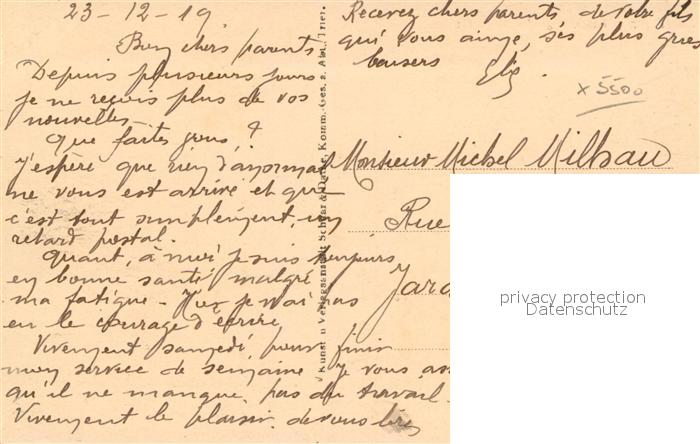 23-12-19
Bien chers parents
Depuis plusieurs jours
je ne reçois plus de vos
nouvelles.
Que faites vous, ?
J'espère que rien d'anormal
ne vous est arrivé et que
c'est tout simplement, un
retard postal.
Quant, à moi je suis toujours
en bonne santé malgré
ma fatigue - Hier je n'ai pas
eu le courage d'écrire
Vivement samedi, pour finir
mon service de semaine. Je vous
qu'il ne manque, pas du travail.
Vivement le plaisir, de vous lire
Kunst u Verlagsanstalt Schaar & Dathe, Komm.-Ges. a. Akt., Trier.
Recevez chers parents de votre fils
qui vous aime, ses plus gros
baisers
x 5500
Monsieur Michel Milhau
Rue
privacy protection
Datenschutz